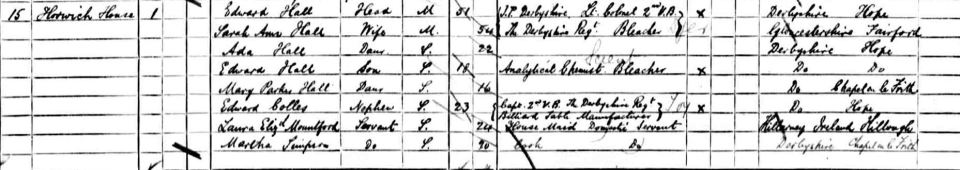 15 Horwich House 1 Edward Hall Head M. 51 J.P. Derbyshire, Lt. Colonel 2nd V.B. x Derbyshire Hope
Sarah Ann Hall Wife M. 54 The Derbyshire Regt. Bleacher Gloucestershire Fairford
Ada Hall Daur S. 22 Derbyshire Hope
Edward Hall Son S. 18 Analytical Chemist Bleacher x Do Do
Mary Parkes Hall Daur S. 16 Do Chapel en le Frith
Edward Colles Nephew S. 23 Capt. 2nd V.B. The Derbyshire Regt x Do Hope
Billiard Table Manufacturer
Laura Elizth Mountford Servant S. 24 House Maid Domestic Servant Ireland
Martha Simpson Do S. 20 Cook Do Derbyshire Chapel en le Frith